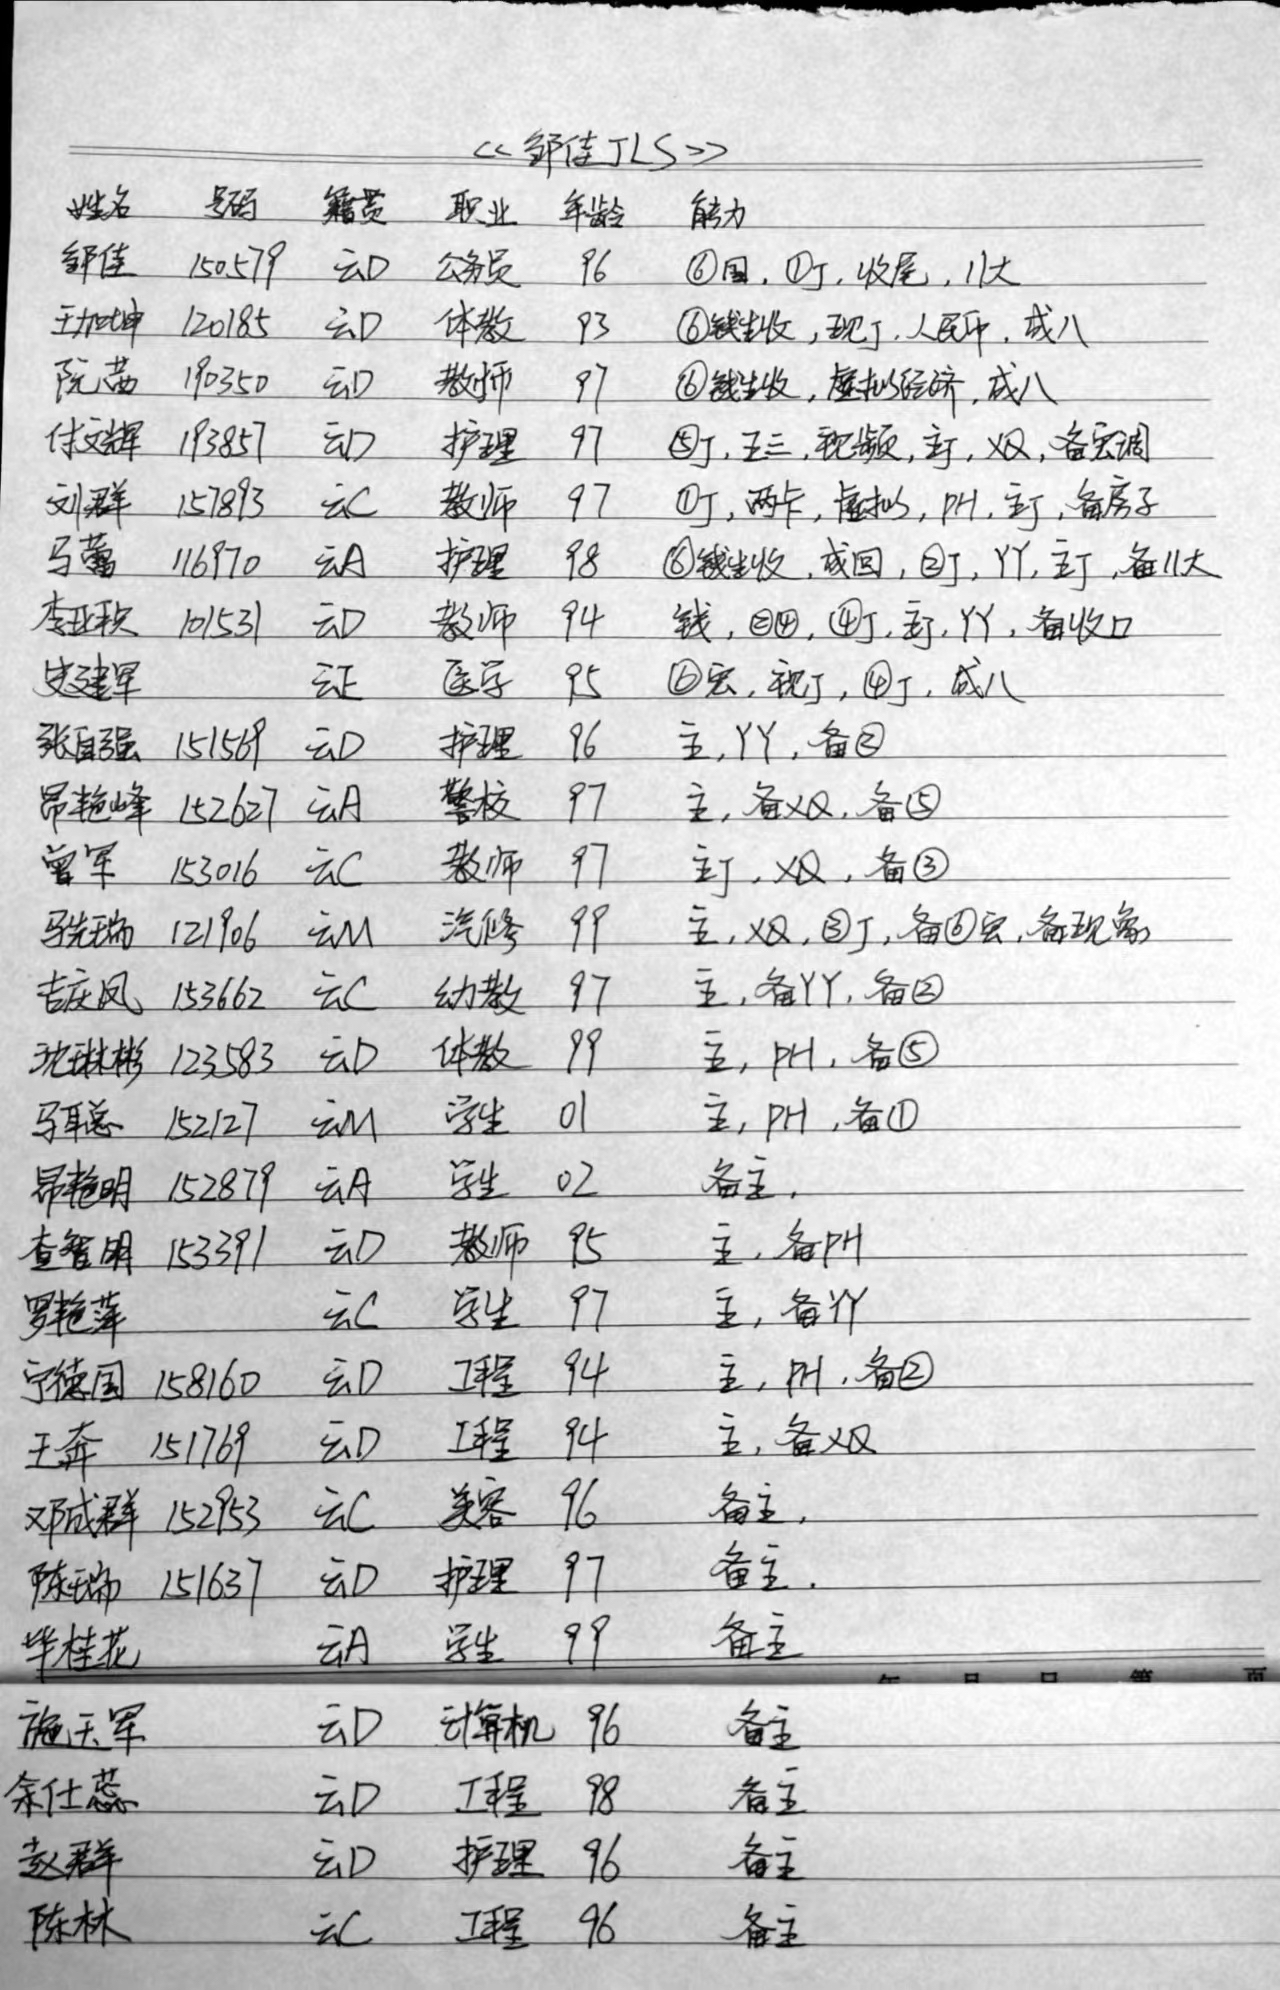 <<邹佳JLS>>
姓名 号码 籍贯 职业 年龄 能力
邹佳 150579 云D 公务员 96 ⑥国,①J,收尾,川大
王加坤 120185 云D 体教 93 ⑥钱生收,现J,人民币,成八
阮茜 190350 云D 教师 97 ⑥钱生收,虚拟经济,成八
付文辉 193857 云D 护理 97 ⑤J,王三,视频,主J,XQ,备宏调
刘群 157893 云C 教师 97 ①J,两卡,虚拟,PH,主J,备房子
马蕾 116970 云A 护理 98 ⑥钱生收,成回,②J,YY,主J,备川大
李亚秋 101531 云D 教师 94 钱,②④,④J,主J,YY,备收口
史建军 云E 医学 95 ⑥宏,视J,④J,成八
张自强 151569 云D 护理 96 主,YY,备②
昂艳峰 152627 云A 警校 97 主,备XQ,备⑤
曾军 153016 云C 教师 97 主J,XQ,备③
马先瑞 121906 云M 汽修 99 主,XQ,③J,备⑥宏,备现象
吉庆凤 153662 云C 幼教 97 主,备YY,备②
沈琳彬 123583 云D 体教 99 主,PH,备⑤
马聪 152127 云M 学生 01 主,PH,备①
昂艳明 152879 云A 学生 02 备主,
查智明 153391 云D 教师 95 主,备PH
罗艳萍 云C 学生 97 主,备YY
宁德国 158160 云D 工程 94 主,PH,备②
王奔 151769 云D 工程 94 主,备XQ
邓成群 152953 云C 美容 96 备主,
陈瑞 151637 云D 护理 97 备主.
毕桂花 云A 学生 99 备主
年 月 日 第 页
施天军 云D 计算机 96 备主
余仕蕊 云D 工程 98 备主
赵群 云D 护理 96 备主
陈林 云C 工程 96 备主